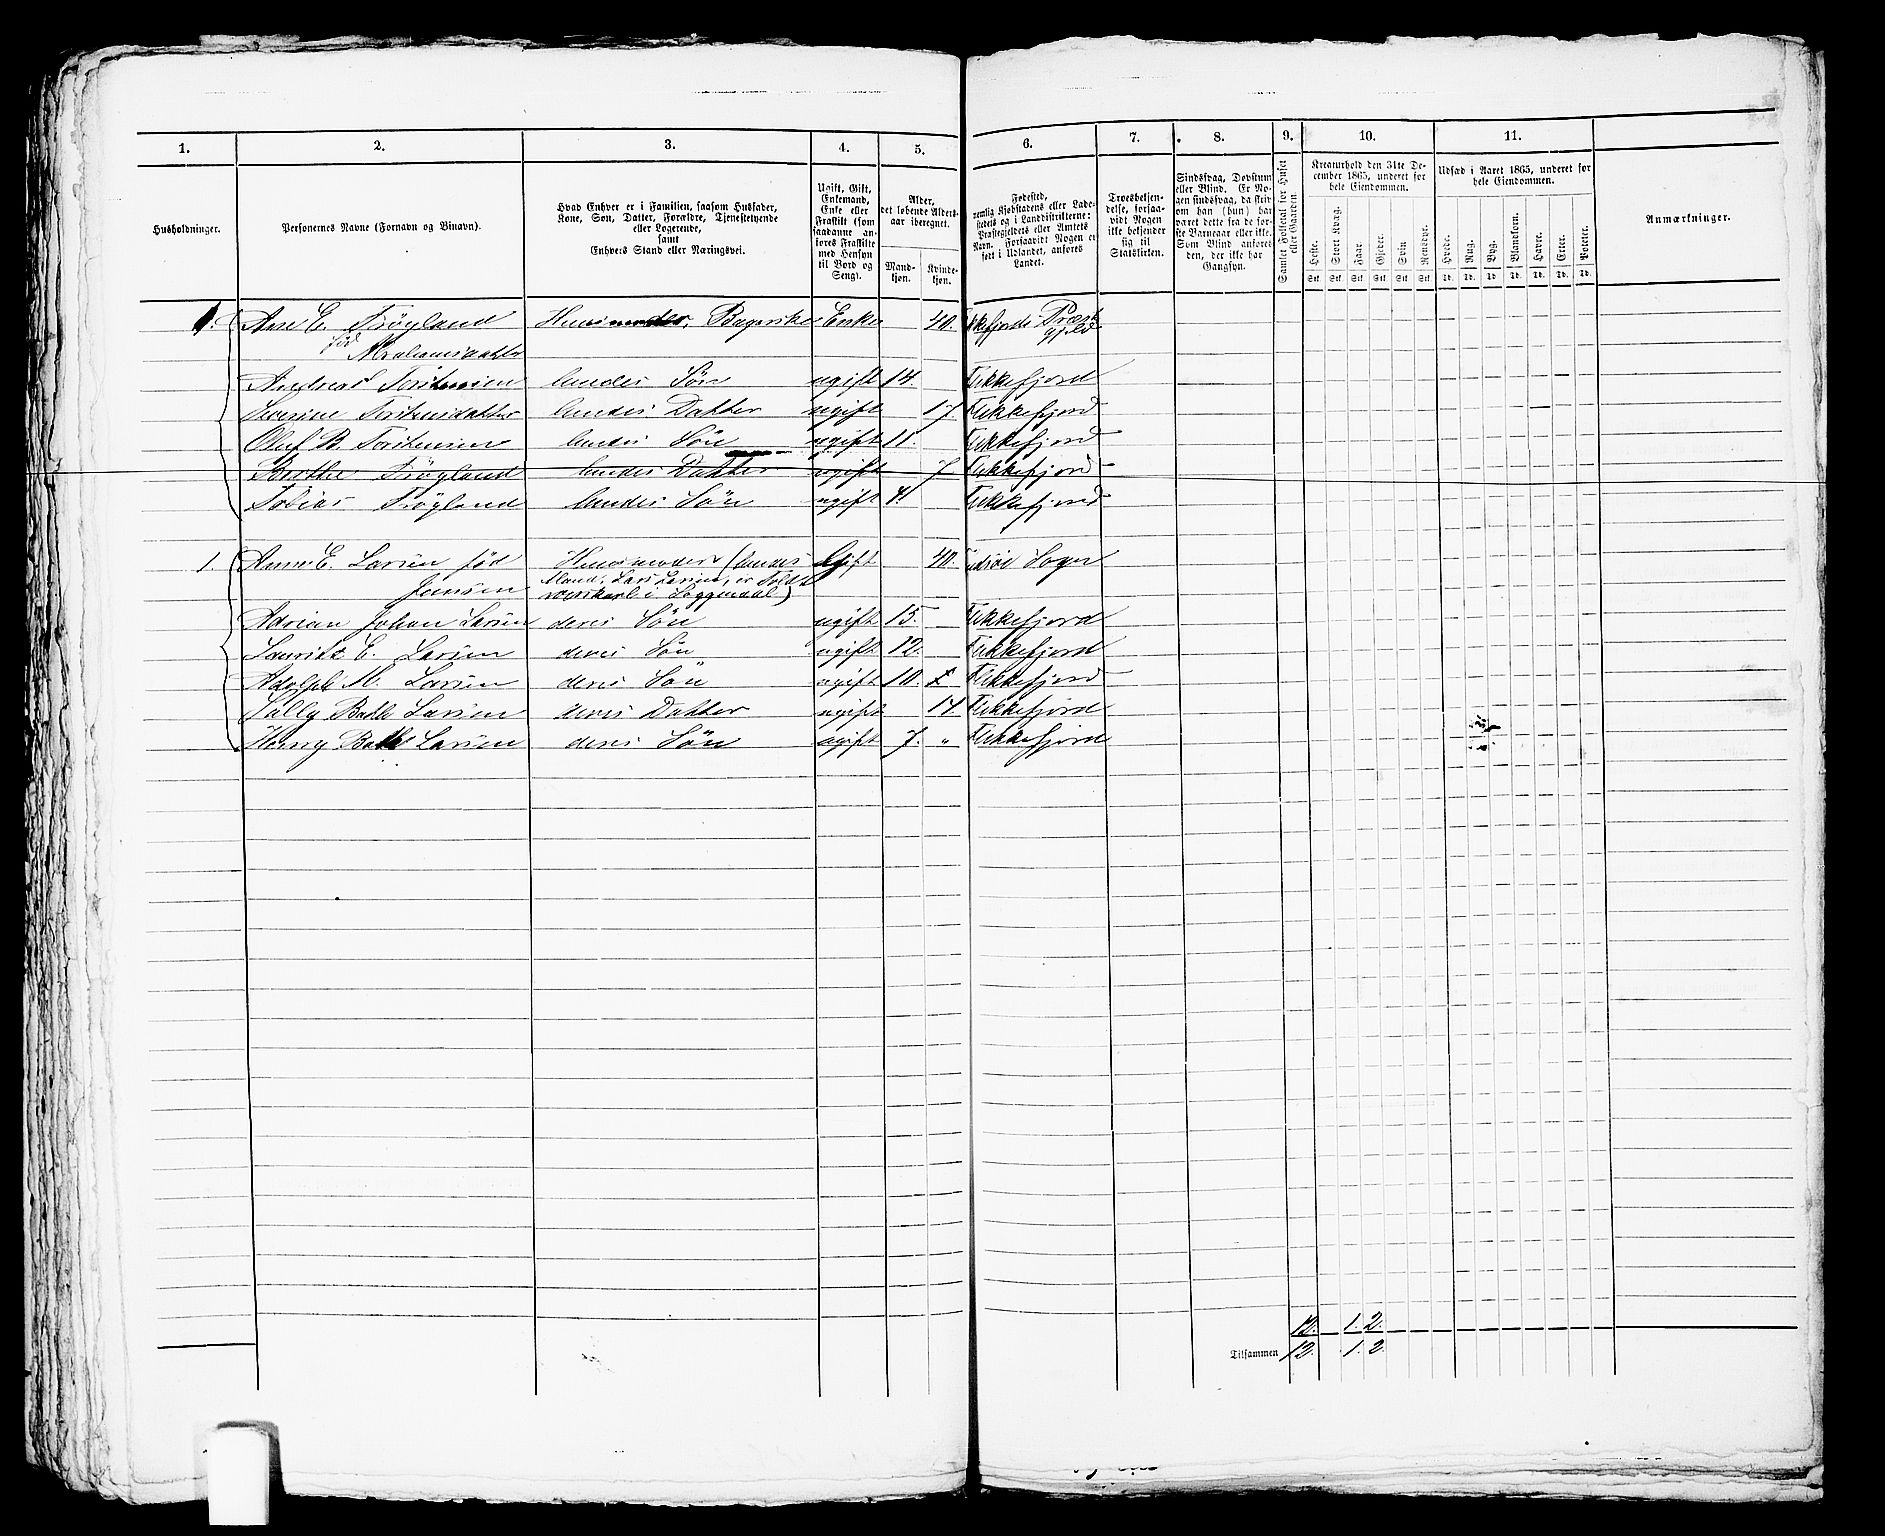 1. 2. 3. 4. 5. 6. 7. 8. 9. 10. 11.
Husholdninger.
Personernes Navne (Fornavn og Binavn).
Hvad Enhver er i Familien, saasom Husfader,
Kone, Søn, Datter, Forældre, Tjenestetyende
eller Logerende,
samt
Enhvers Stand eller Næringsvei.
Ugift, Gift,
Enkemand,
Enke eller
Fraskilt (som
saadanne an-
føres Fraskilte
med Hensyn
til Bord og
Seng).
Alder,
det løbende Alders-
aar iberegnet.
Mand-
kjøn.
Kvinde-
kjøn.
Fødested,
nemlig Kjøbstadens eller Lade-
stedets og i Landdistrikterne:
Præstegjeldets eller Amtets
Navn. Forsaavidt Nogen er
født i Udlandet, anføres
Landet.
Troesbekjen-
delse, forsaa-
vidt Nogen
ikke bekjender
sig til
Statskirken.
Sindssvag, Døvstum
eller Blind. Er No-
gen sindssvag, da skri-
ves om han (hun) har
været dette fra de før-
ste Barneaar eller ikke.
Som Blind anføres
den, der ikke har
Gangsyn.
Samlet Folketal for Huset
eller Gaarden.
Kreaturhold den 31te De-
cember 1865, underet for
hele Eiendommen.
Heste. Stort Kvæg. Faar. Gjeder. Svin. Rensdyr.
Stk. Stk. Stk. Stk. Stk. Stk.
Udsæd i Aaret 1865, underet for
hele Eiendommen.
Hvede. Rug. Byg. Blandkorn. Havre. Erter. Poteter.
Td. Td. Td. Td. Td. Td. Td.
Anmærkninger.
1. Ane E. Frøyland Huusmoder, Enke 40. kkefjords Præste
gjeld
fød
Abrahamsdatter
Andreas Torstensen hendes Søn ugift 14. Flekkefjord
Severine Torstensdatter hendes Datter ugift 17. Flekkefjord
Oluf B. Torstensen hendes Søn ugift 11. Flekkefjord
Berthe Frøyland hendes Datter ugift 7. Flekkefjord
Tobias Frøyland hendes Søn ugift 4. Flekkefjord
1. Anne E. Larsen fød Huusmoder (hendes Gift 40. Sogn
Jansen Mand, Lars Larsen, er Told
i Soggendal)
Adrian Johan Larsen deres Søn ugift 15. Flekkefjord
Lauritz E. Larsen deres Søn ugift 12. Flekkefjord
Adolph M. Larsen deres Søn ugift 10. Flekkefjord
Sally Larsen deres Datter ugift 14. Flekkefjord
Larsen deres Søn ugift 7. " Flekkefjord
12. 1. 2.
Tilsammen 12. 1. 2.